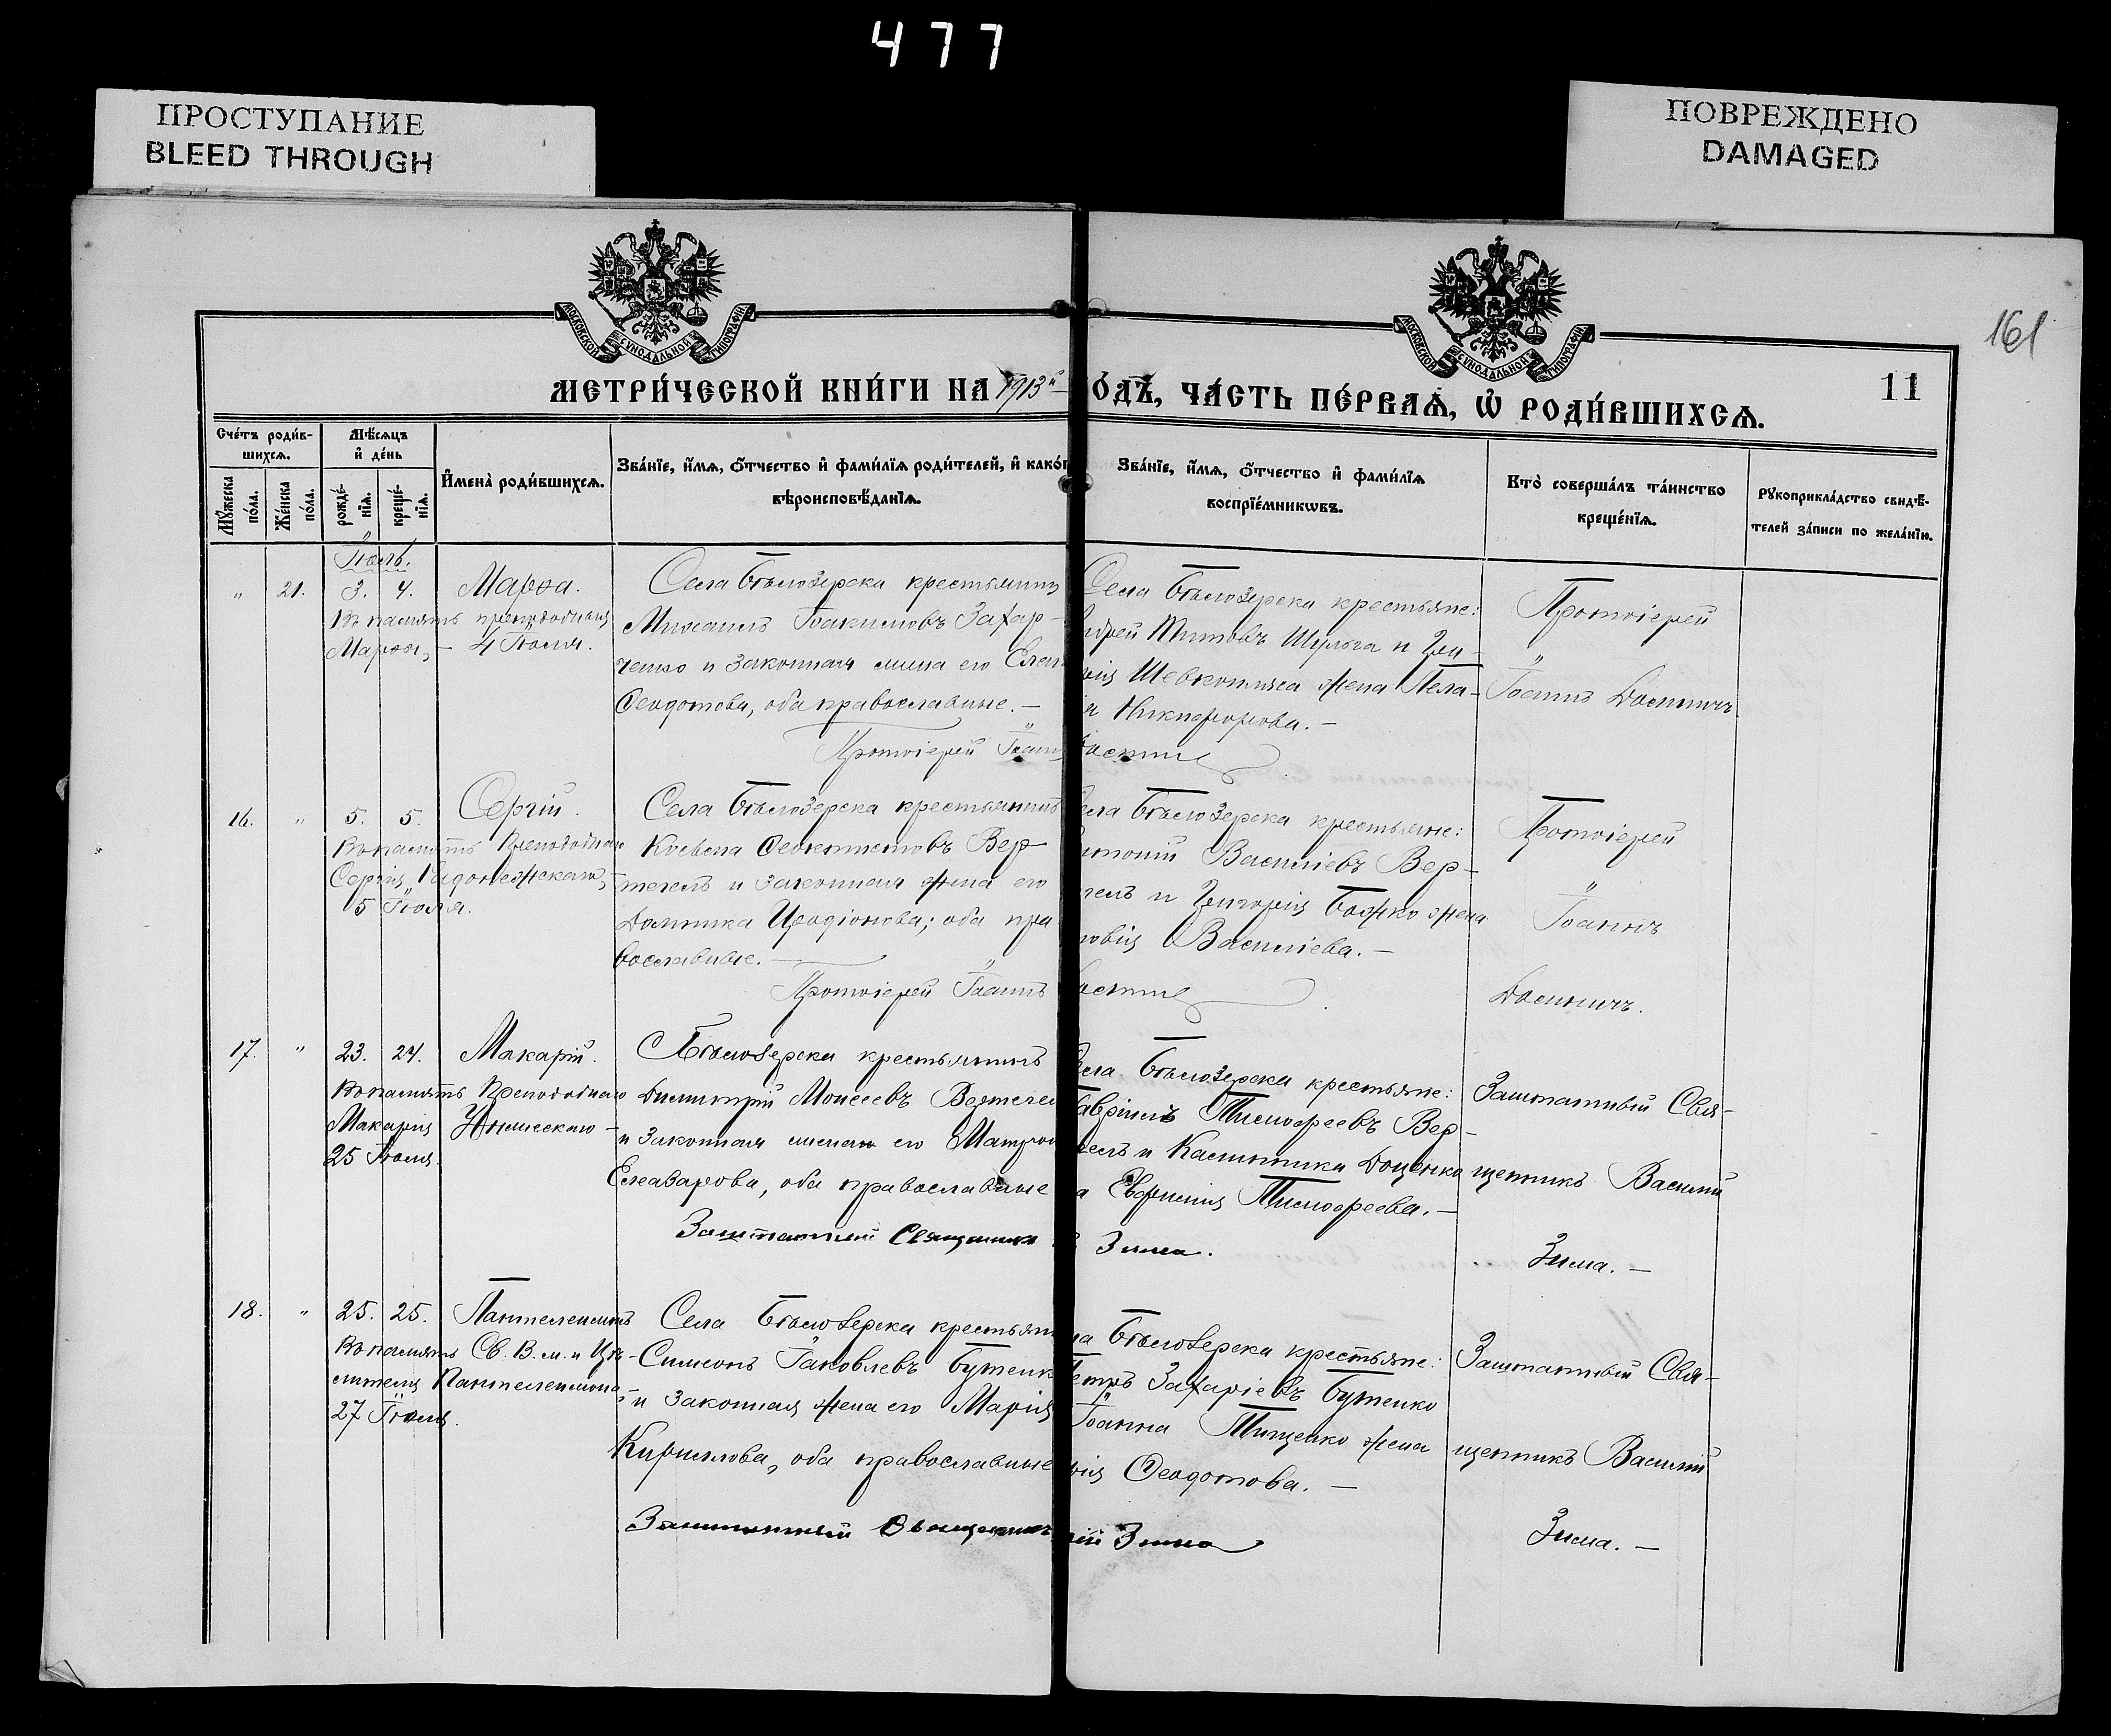 477
ПРОСТУПАНИЕ
BLEED THROUGH
ПОВРЕЖДЕНО
DAMAGED
МОСКОВСКОЙ СУНОДАЛЬНОЙ ТИПОГРАФІИ
МОСКОВСКОЙ СУНОДАЛЬНОЙ ТИПОГРАФІИ
161
МЕТРИ́ЧЕСКОЙ КНИ́ГИ НА 1913й
О́ДЪ, ЧА́СТЬ ПЕ́РВАѦ, Ѡ҆ РОДИ́ВШИХСѦ.
11
Сче́тъ роди́в-
шихсѧ.
Мѣ́сѧцъ
и҆ де́нь
Мꙋ́жеска по́ла.
Же́нска по́ла.
рожде́-
нїѧ.
креще́-
нїѧ.
И҆мена̀ роди́вшихсѧ.
Зва́нїе, и҆́мѧ, ѻ҆́тчество и҆ фами́лїѧ роди́телей, и҆ како́г
вѣроисповѣ́данїѧ.
Зва́нїе, и҆́мѧ, ѻ҆́тчество и҆ фами́лїѧ
воспрїе́мникѡвъ.
Кто̀ соверша́лъ та́инство
креще́нїѧ.
Рꙋкоприкла́дство свидѣ́-
телей за́писи по жела́нїю.
Іюль.
" 21. 3. 4. Марѳа.
Въ память преподобныя
Марѳы, – 4 Іюля.
Села Бѣлозерска крестьянинъ
Михаилъ Іоакимовъ Захар-
ченко и законная жена его Елен
Ѳеодотова, оба православные. –
Протоіерей Іоанн
Села Бѣлозерска крестьяне:
ндрей Титовъ Шульга и Гри-
рія Шевкопляса жена Пела-
я Никифорова. –
Протоіерей
Іоаннъ Досинчъ.
16. " 5. 5. Сергій.
Въ память Преподобнаго
Сергія Радонежскаго, –
5 Іюля.
Села Бѣлозерска крестьянинъ
Ѳеоктистовъ Вер-
тегелъ и законная жена его
Домника Иродіонова; оба пра
вославные. –
Протоіерей Іоаннъ
ела Бѣлозерска крестьяне:
нтоній Василіевъ Вер-
гелъ и Григорія Божко жена
Василіева. –
Протоіерей
Іоаннъ
17. " 23. 24. Макарій.
Въ память Преподобнаго
Макарія
25 Іюля.
Бѣлозерска крестьянинъ
Димитрій Моисеевъ Вертегел
и законная жена его Матрон
Елеазарова, оба православные
Заштатный Священник
ела Бѣлозерска крестьяне:
Гавріилъ Тимоѳеевъ Вер-
гелъ и Каллиника Доценко
а Евфимія Тимоѳеева. –
Зима.
Заштатный Свя-
щенникъ Василій
Зима. –
18. " 25. 25. Пантелеимонъ
Въ память Св. В. м. и Цѣ-
лителя Пантелеимона –
27 Іюля.
Села Бѣлозерска крестьян
Симеонъ Іаковлевъ Бутенк
и законная жена его Марія
Кириллова, оба православные
Заштатный Священникъ
ла Бѣлозерска крестьяне:
Петръ Захаріевъ Бутенко
Іоанна Тищенко жена
рія Ѳеодотова. –
лій Зима
Заштатный Свя-
щенникъ Василій
Зима. –